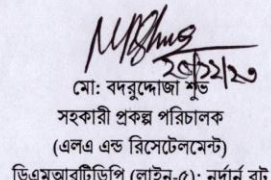 ২৮/১২/২৩
মো: বদরুদ্দোজা শুভ
সহকারী প্রকল্প পরিচালক
(এলএ এন্ড রিসেটেলমেন্ট)
ডিএমআরটিডিপি (লাইন-৫): নর্দার্ন রুট